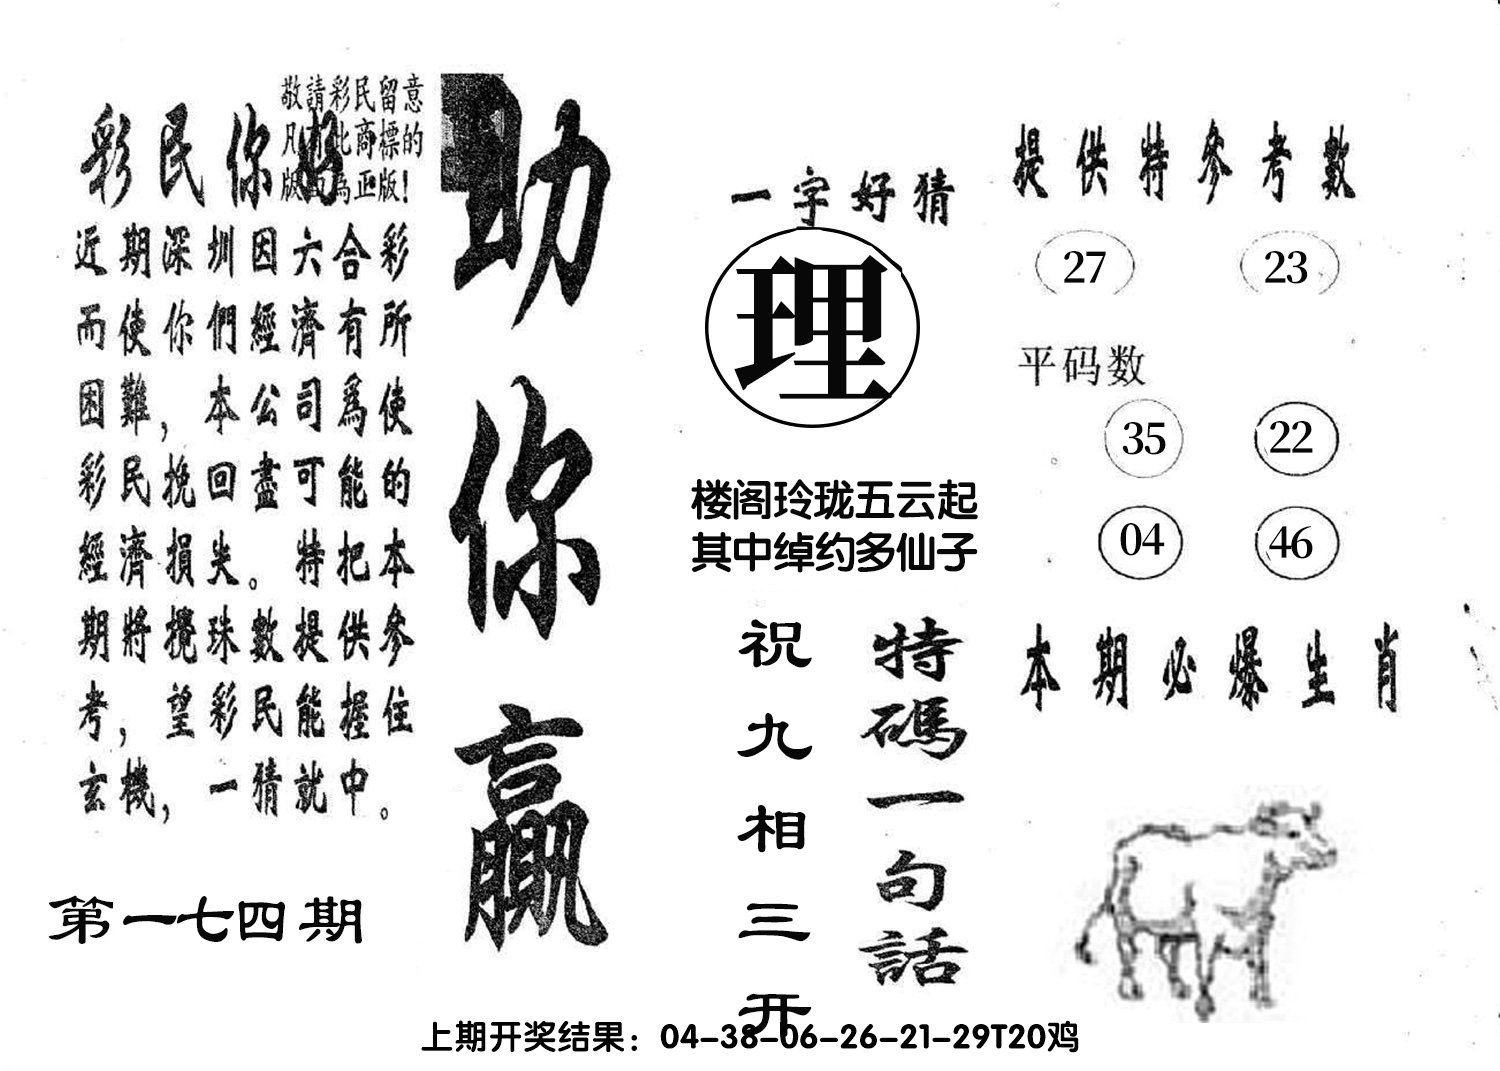 敬請彩民留意
凡有此商標的
版面為正版!
彩民你好
近期深圳因六合彩
而使你們經濟有所
困難，本公司爲使
彩民挽回盡可能的
經濟損失。特把本
期將攪珠數提供參
考，望彩民能握住
玄機，一猜就中。
第一七四期
助你赢
一字好猜
理
楼阁玲珑五云起
其中绰约多仙子
特碼一句話
祝九相三开
提供特參考數
27 23
平码数
35 22
04 46
本期必爆生肖
上期开奖结果：04-38-06-26-21-29T20鸡